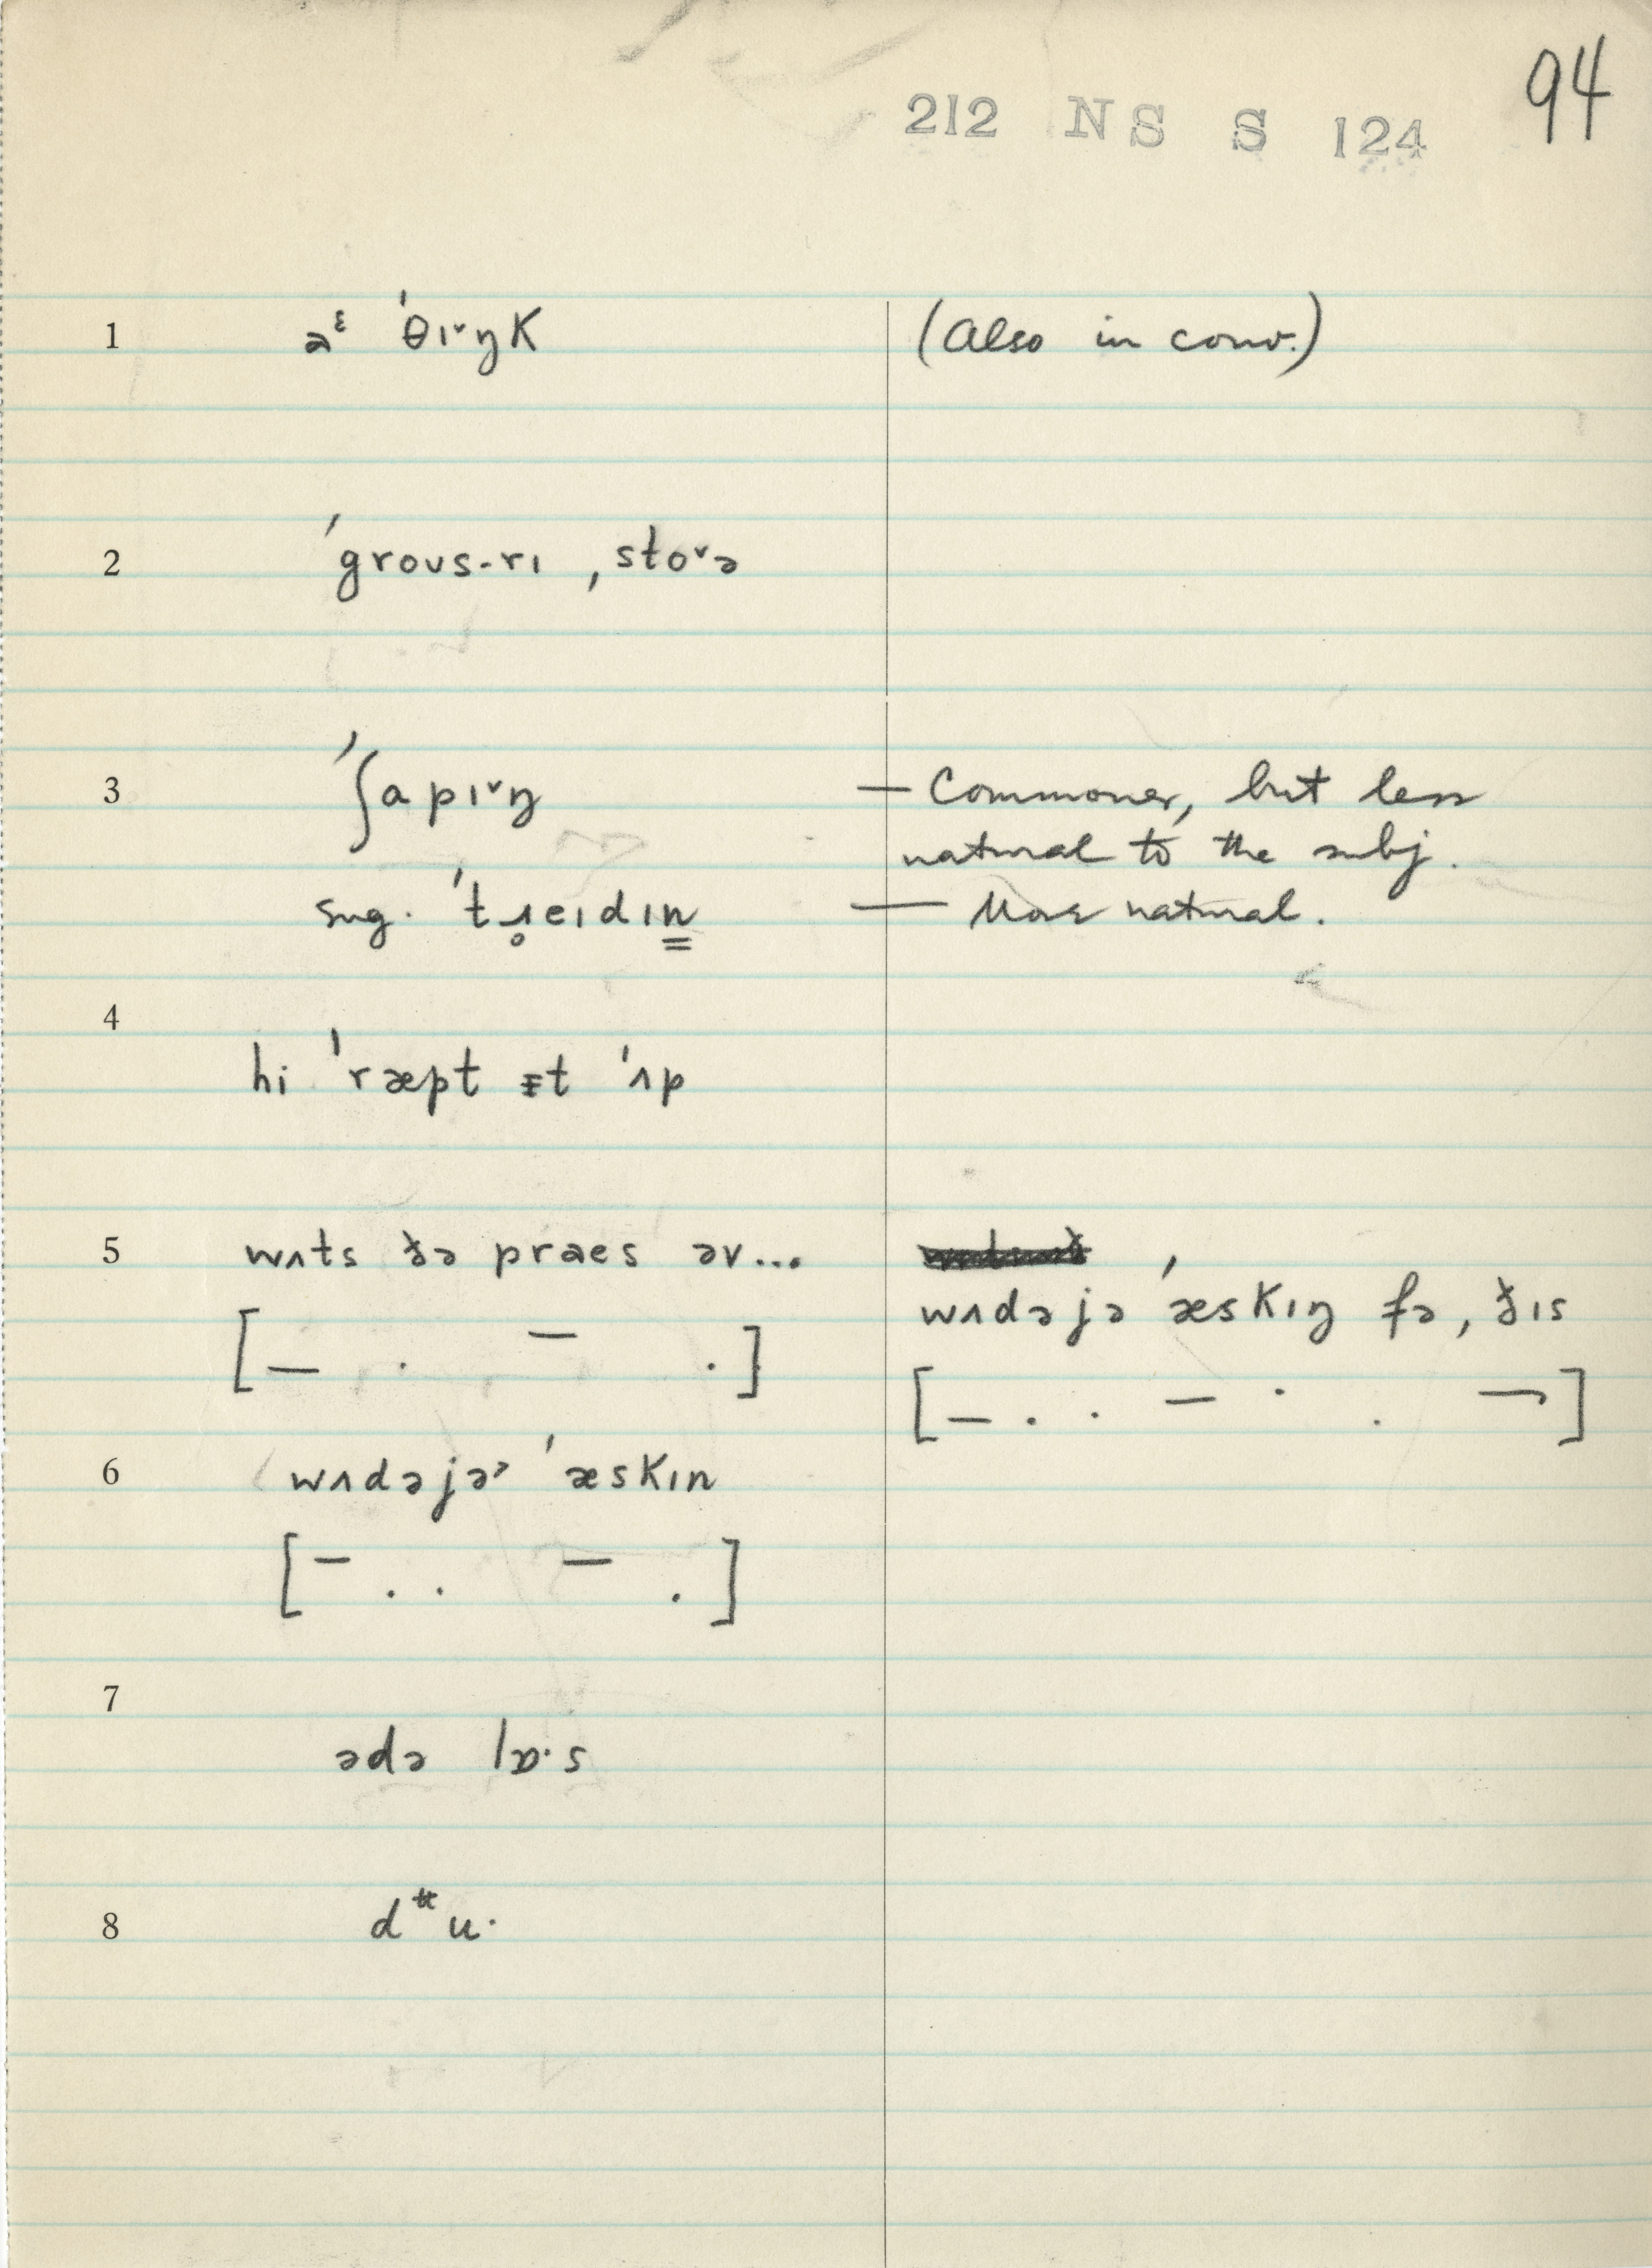 94
212 NS S 124
1 aᵋ ˈθɪ˅ŋk (Also in conv.)
2 ˈgroʊs-rɪ ˌsto˅ə
3 ˈʃapɪ˅ŋ — Commoner, but less
natural to the subj.
sug. ˈtɹ̥eɪdɪn̳ — More natural.
4
hi ˈræpt ɪt ˈʌp
5 wʌts ðə praes əv...
wʌdəjə ˈæskɪŋ fə ˌðɪs
[— · — ·]
[— · · — · · ¬]
6 wʌdəjə˒ ˈæskɪn
[— · · — ·]
7
ədə lɒ·s
8 dᵗᵗu·